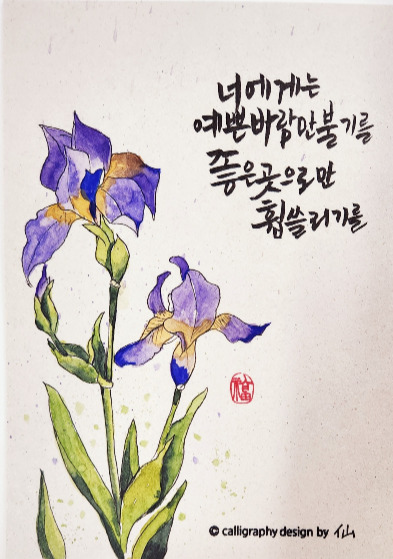 너에게는
예쁜바람만불기를
좋은곳으로만
휩쓸리기를
福
© calligraphy design by 仙